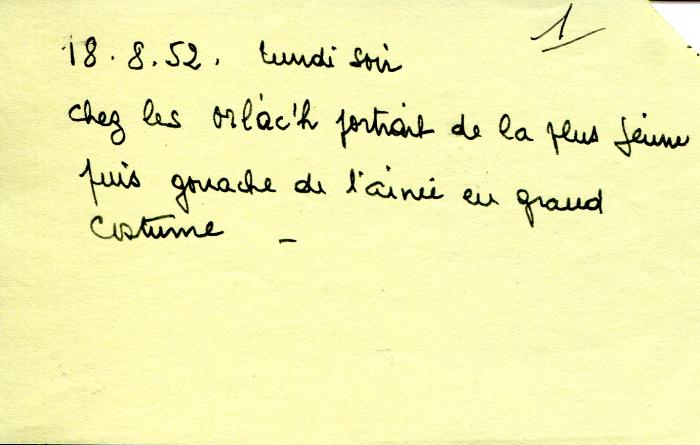 1
18.8.52. lundi soir
chez les orlac'h portrait de la plus jeune
puis gouache de l'ainée en grand
costume –